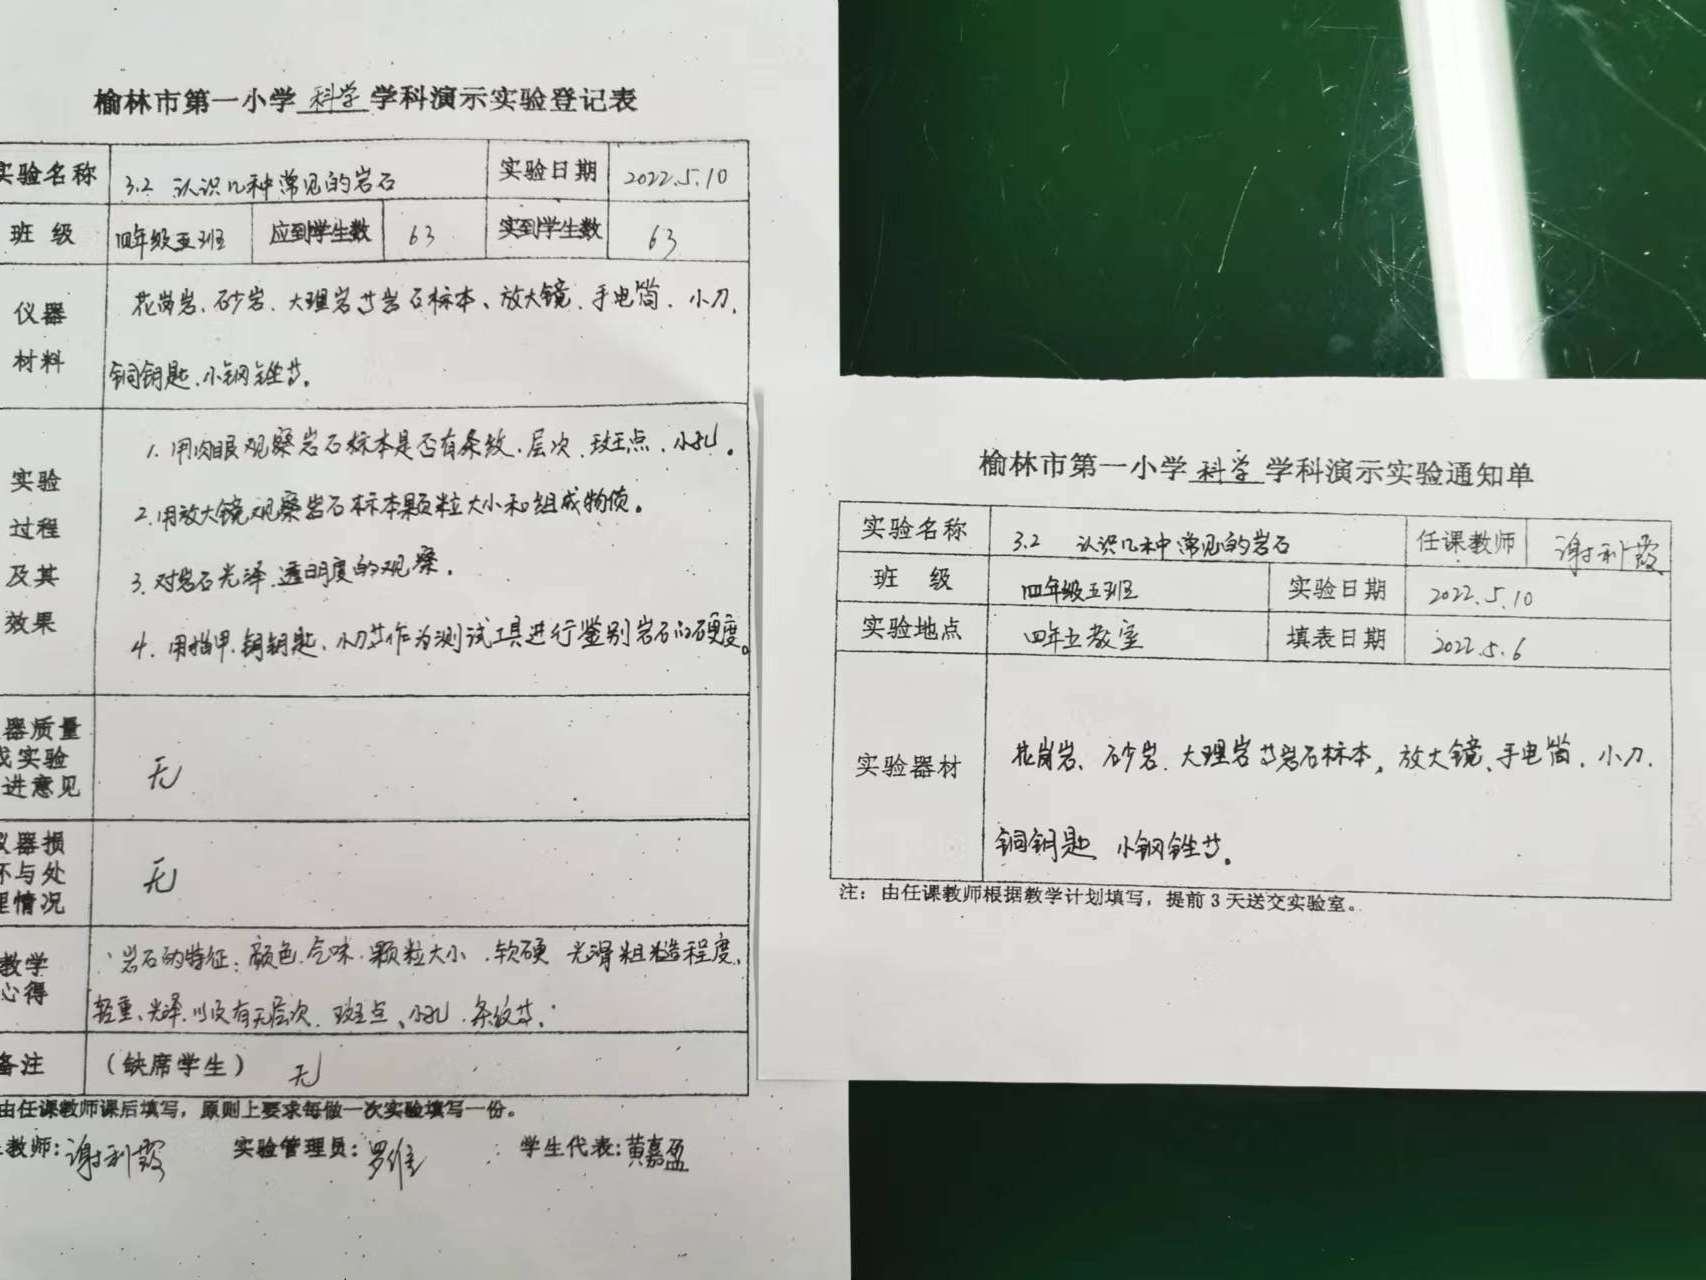 榆林市第一小学 科学 学科演示实验登记表
实验名称 3.2 认识几种常见的岩石 实验日期 2022.5.10
班 级 四年级五班 应到学生数 63 实到学生数 63
仪器
材料
花岗岩、砂岩、大理岩等岩石标本、放大镜、手电筒、小刀、
铜钥匙、小钢锉等。
实验
过程
及其
效果
1. 用肉眼观察岩石标本是否有条纹、层次、斑点、小孔。
2. 用放大镜观察岩石标本颗粒大小和组成物质。
3. 对岩石光泽、透明度的观察。
4. 用指甲、铜钥匙、小刀等作为测试工具进行鉴别岩石的硬度。
器质量
或实验
进意见
无
仪器损
坏与处
理情况
无
教学
心得
岩石的特征：颜色、气味、颗粒大小、软硬、光滑粗糙程度、
轻重、光泽、以及有无层次、斑点、小孔、条纹等.
备注 （缺席学生） 无
由任课教师课后填写，原则上要求每做一次实验填写一份。
教师：谢利霞 实验管理员：罗维 学生代表：黄嘉盈
榆林市第一小学 科学 学科演示实验通知单
实验名称 3.2 认识几种常见的岩石 任课教师 谢利霞
班 级 四年级五班 实验日期 2022.5.10
实验地点 四年五教室 填表日期 2022.5.6
实验器材
花岗岩、砂岩、大理岩等岩石标本、放大镜、手电筒、小刀、
铜钥匙、小钢锉等。
注：由任课教师根据教学计划填写，提前3天送交实验室。